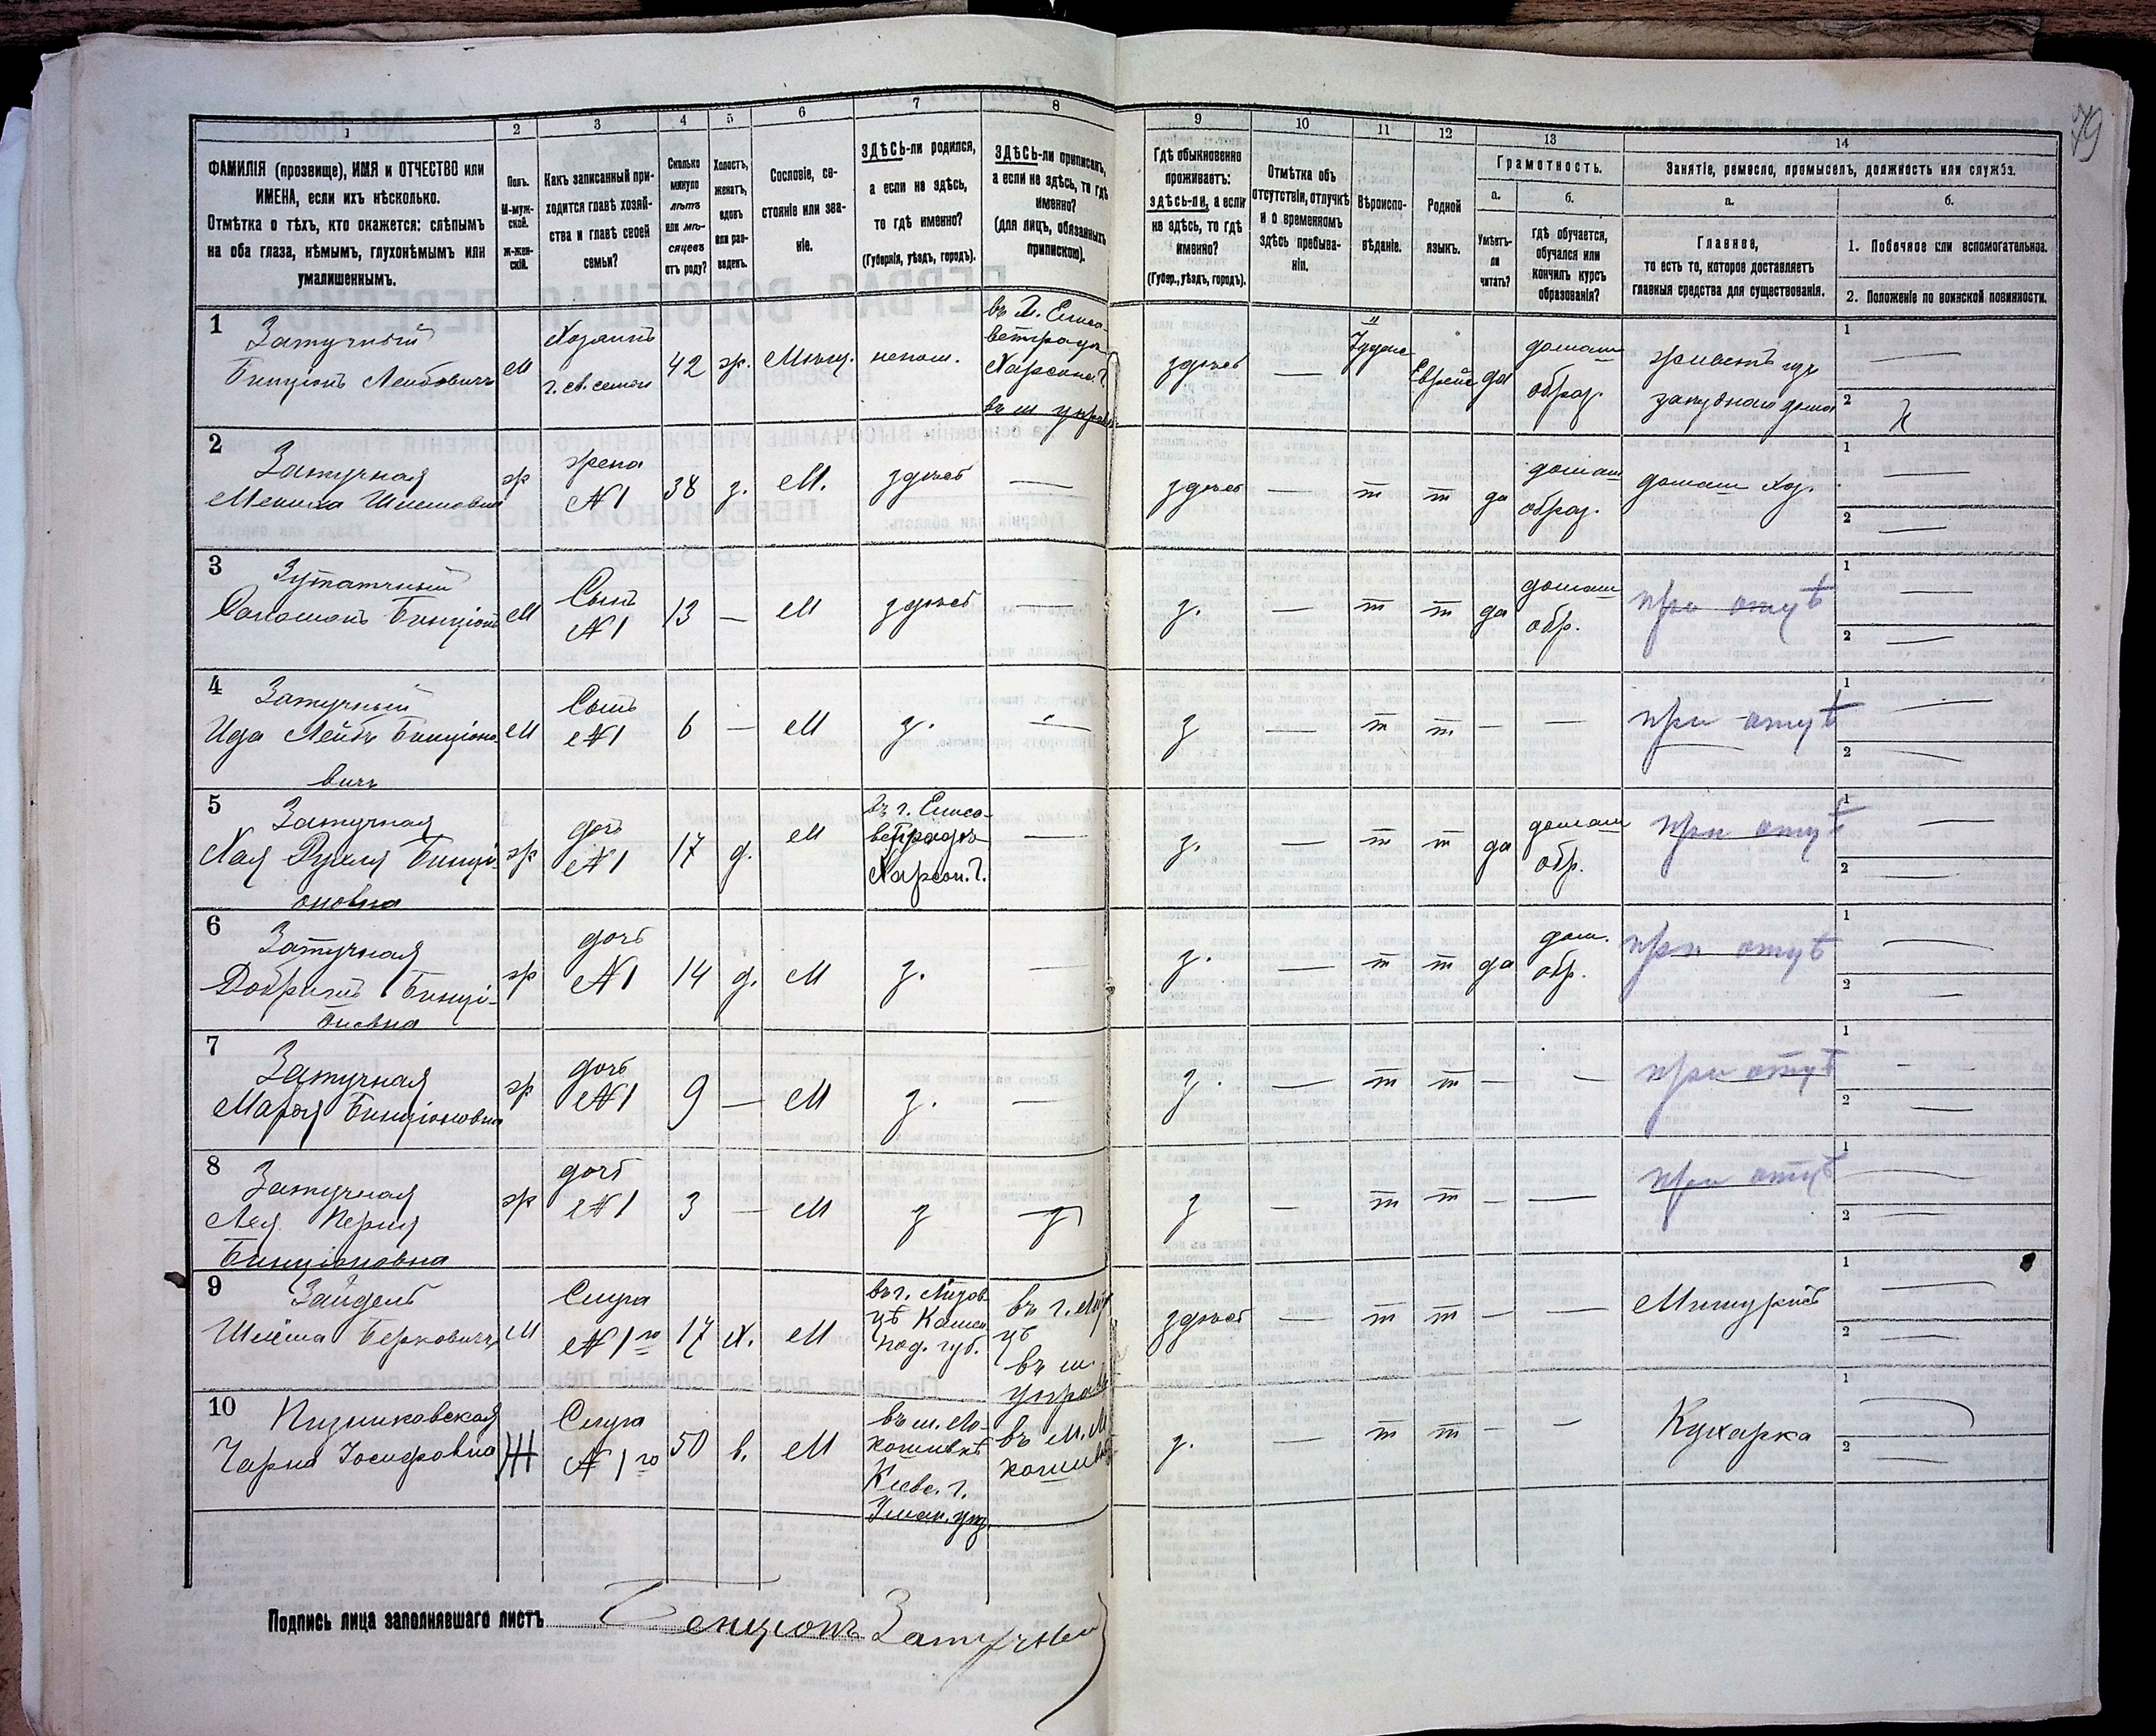 79
1
2
3
4
5
6
7
8
9
10
11
12
13
14
ФАМИЛІЯ (прозвище), ИМЯ и ОТЧЕСТВО или
ИМЕНА, если ихъ нѣсколько.
Отмѣтка о тѣхъ, кто окажется: слѣпымъ
на оба глаза, нѣмымъ, глухонѣмымъ или
умалишеннымъ.
Полъ.
М-муж-
ской.
Ж-жен-
скій.
Какъ записанный при-
ходится главѣ хозяй-
ства и главѣ своей
семьи?
Сколько
минуло
лѣтъ
или мѣ-
сяцевъ
отъ роду?
Холостъ,
женатъ,
вдовъ
или раз-
веденъ.
Сословіе, со-
стояніе или зва-
ніе.
ЗДѢСЬ-ли родился,
а если не здѣсь,
то гдѣ именно?
(Губернія, уѣздъ, городъ).
ЗДѢСЬ-ли приписанъ,
а если не здѣсь, то гдѣ
именно?
(для лицъ, обязанныхъ
припискою).
Гдѣ обыкновенно
проживаетъ:
здѣсь-ли, а если
не здѣсь, то гдѣ
именно?
(Губер., уѣздъ, городъ).
Отмѣтка объ
отсутствіи, отлучкѣ
и о временномъ
здѣсь пребыва-
ніи.
Вѣроиспо-
вѣданіе.
Родной
языкъ.
Грамотность.
а.
Умѣетъ-
ли
читать?
б.
гдѣ обучается,
обучался или
кончилъ курсъ
образованія?
Занятіе, ремесло, промыселъ, должность или служба.
а.
Главное,
то есть то, которое доставляетъ
главныя средства для существованія.
б.
1. Побочное или вспомогательное.
2. Положеніе по воинской повинности.
1 Затучный
Бинціонъ Лейбовичъ
М
Хозяинъ
г. св. семьи
42
ж.
Мѣщ.
въ г. Елиса-
ветградѣ
Херсонс. г.
въ м. управѣ
здѣсь
—
Іудейс
Еврейс
да
домаш
образ.
1 —
2
2 Затучная
ж
жена
№1
38
з.
М.
здѣсь
—
здѣсь
—
т
т
да
домаш
образ.
домаш хоз.
1 —
2 —
3
Соломонъ Бинціон
М
Сынъ
№1
13
—
М
здѣсь
—
з.
—
т
т
да
домаш
обр.
при отцѣ
1 —
2 —
4 Затучный
Ида Лейбъ Бинціоно-
вичъ
М
Сынъ
№1
6
—
М
з.
—
з
—
т
т
—
—
при отцѣ
1 —
2 —
5 Затучная
Хая Бинці-
оновна
ж
дочь
№1
17
д.
М
въ г. Елиса-
ветградѣ
Херсон. г.
—
з.
—
т
т
да
домаш
обр.
при отцѣ
1 —
2 —
6 Затучная
ж
дочь
№1
14
д.
М
з.
—
з.
—
т
т
да
дом.
обр.
при отцѣ
1 —
2 —
7 Затучная
Бинціоновна
ж
дочь
№1
9
—
М
з.
—
з.
—
т
т
—
—
при отцѣ
1 —
2 —
8 Затучная
Лея Перля
Бинціоновна
ж
дочь
№1
3
—
М
з
з
—
т
т
—
—
при отцѣ
1 —
2 —
9 Зайдель
Шлёма Берковичъ
М
Слуга
№1го
17
х.
М
под. губ.
въ м.
управѣ
здѣсь
—
т
т
—
—
1 —
2 —
10
Чарна Іосифовна
Ж
Слуга
№1го
50
в.
М
Кіевс. г.
Уман. уѣз.
з.
—
т
т
—
—
Кухарка
1 —
2 —
Подпись лица заполнявшаго листъ Бенціонъ Затучный